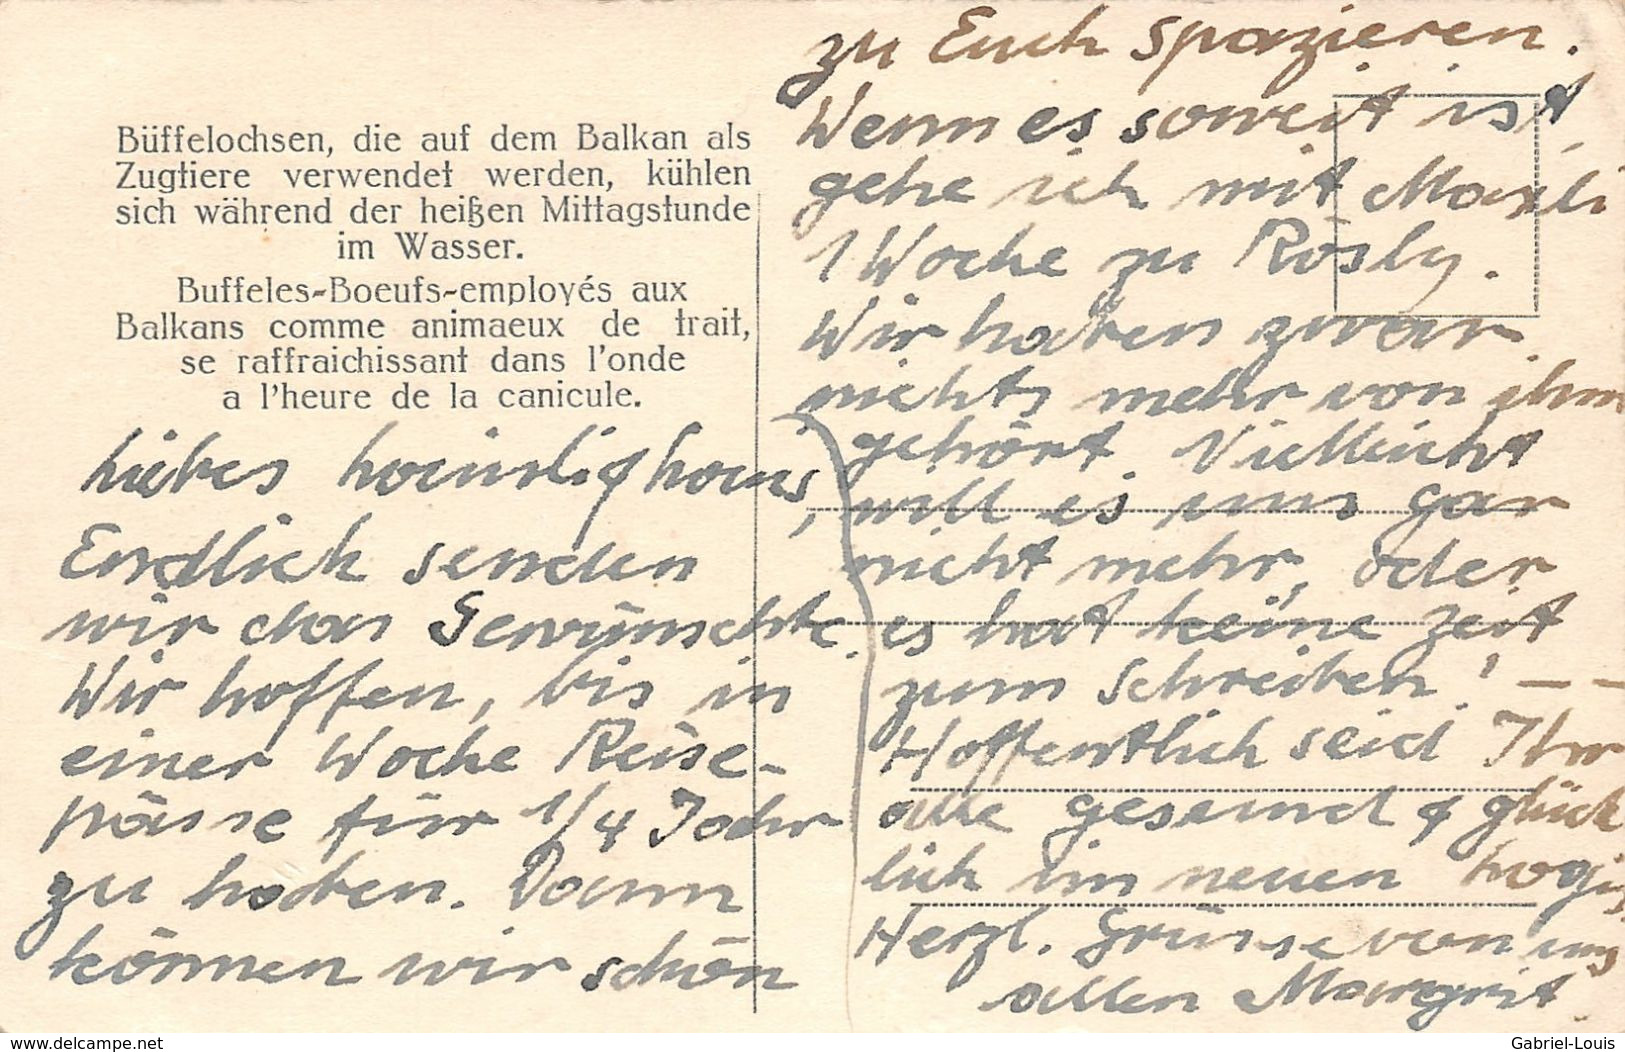 Büffelochsen, die auf dem Balkan als
Zugtiere verwendet werden, kühlen
sich während der heißen Mittagstunde
im Wasser.
Buffeles-Boeufs-employés aux
Balkans comme animaeux de trait,
se raffraichissant dans l'onde
a l'heure de la canicule.
Liebes
Endlich senden
wir das Gewünschte.
Wir hoffen, bis in
einer Woche Reise-
pässe für 1/4 Jahr
zu haben. Dann
können wir schön
zu Euch spazieren.
Wenn es soweit ist,
gehe ich mit Maxli
1 Woche zu Rösly.
Wir haben zwar
nichts mehr von ihm
gehört. Vielleicht
will es uns gar
nicht mehr, oder
es hat keine Zeit
zum Schreiben! — —
Hoffentlich seid Ihr
alle gesund & glück
lich im neuen Logis
Herzl. Grüsse von uns
allen Margrit
www.delcampe.net
Gabriel-Louis